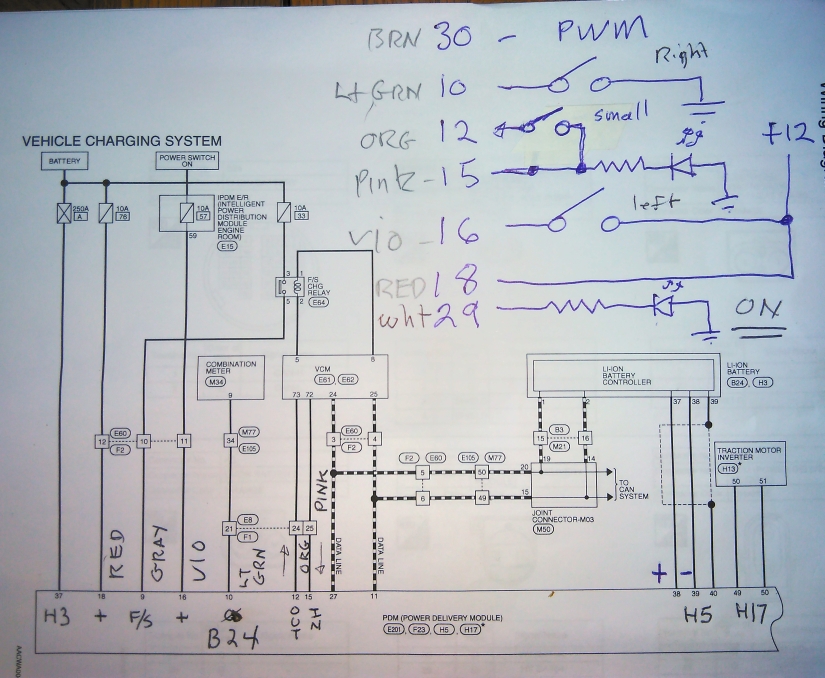 BRN 30 - PWM
Right
Lt GRN 10
small
ORG 12
+12
Pink - 15
left
VIO - 16
RED 18
wht 29
ON
VEHICLE CHARGING SYSTEM
BATTERY
POWER SWITCH ON
250A A
10A 78
10A 57
IPDM E/R (INTELLIGENT POWER DISTRIBUTION MODULE ENGINE ROOM) E15
10A 33
59
3 1
F/S CHG RELAY E64
5 2
COMBINATION METER M34
9
5 8
VCM E61 E62
73 72 24 25
LI-ION BATTERY CONTROLLER
LI-ION BATTERY B24 , H3
1 2 37 38 39
12 E60 F2 10 11
34 M77 E105
3 E60 F2 4
15 B3 M21 16
TRACTION MOTOR INVERTER H13*
50 51
F2 E60 E105 M77
5 50 20 19 14
6 49 15
TO CAN SYSTEM
JOINT CONNECTOR-M03 M50
21 E8 F1 24 25
RED
GRAY
VIO
LT GRN
ORG
PINK
DATA LINE
DATA LINE
+ -
37 18 9 16 10 12 15 27 11 38 39 40 49 50
H3 + F/S + B24
H5 H17
PDM (POWER DELIVERY MODULE)
E201 , F23 , H5 , H17*